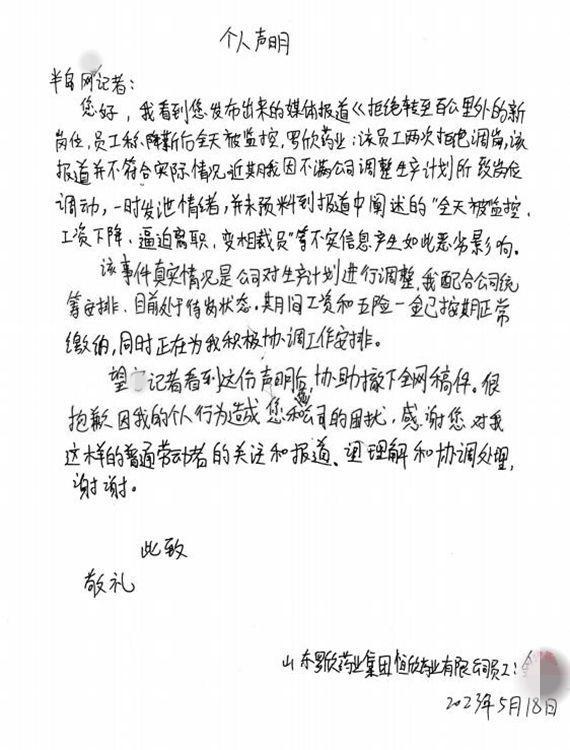 个人声明
半岛网记者：
您好，我看到您发布出来的媒体报道《拒绝转至百公里外的新
岗位，员工称降薪后全天被监控，罗欣药业：该员工两次拒绝调岗，该
报道并不符合实际情况。近期我因不满公司调整生产计划所致岗位
调动，一时发泄情绪，并未预料到报道中阐述的“全天被监控、
工资下降、逼迫离职、变相裁员”等不实信息产生如此恶劣影响。
该事件真实情况是公司对生产计划进行调整，我配合公司统
筹安排、目前处于待岗状态。期间工资和五险一金已按期正常
缴纳，同时正在为我积极协调工作安排。
望记者看到这份声明后，协助撤下全网稿件。很
抱歉因我的个人行为造成您和公司的困扰，感谢您对我
这样的普通劳动者的关注和报道、望理解和协调处理，
谢谢。
此致
敬礼
山东罗欣药业集团恒欣药业有限公司员工：
2023年5月18日